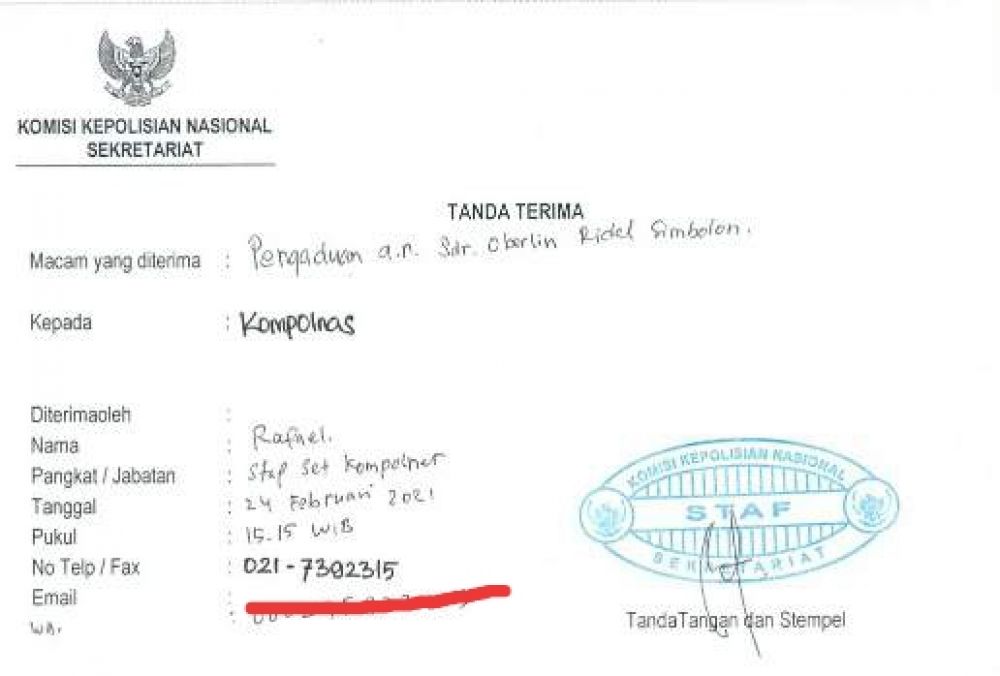 KOMISI KEPOLISIAN NASIONAL
SEKRETARIAT
TANDA TERIMA
Macam yang diterima : Pengaduan a.n. Sdr. Oberlin Ridel Simbolon.
Kepada : Kompolnas
Diterimaoleh :
Nama : Rafael.
Pangkat / Jabatan : Staf Set Kompolnas
Tanggal : 24 Februari 2021
Pukul : 15.15 WIB
No Telp / Fax : 021-7392315
Email :
WA. :
KOMISI KEPOLISIAN NASIONAL
STAF
SEKRETARIAT
TandaTangan dan Stempel